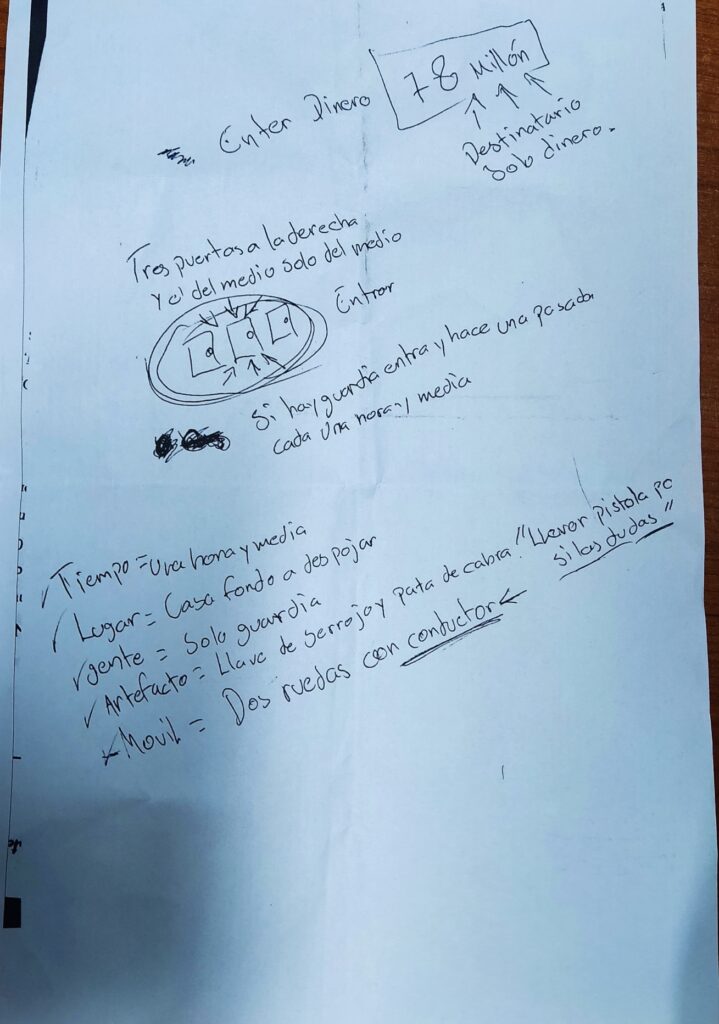 Enter Dinero 78 Millón
Destinatario
solo dinero.
Tres puertas a la derecha
y el del medio solo del medio
Entrar
Si hay guardia entra y hace una pasada
cada una hora y media
Tiempo = Una hora y media
Lugar = Casa fondo a despojar
gente = Solo guardia
Artefacto = Llave de serrojo y pata de cabra. "Llevar pistola po
si las dudas"
Movil = Dos ruedas con conductor